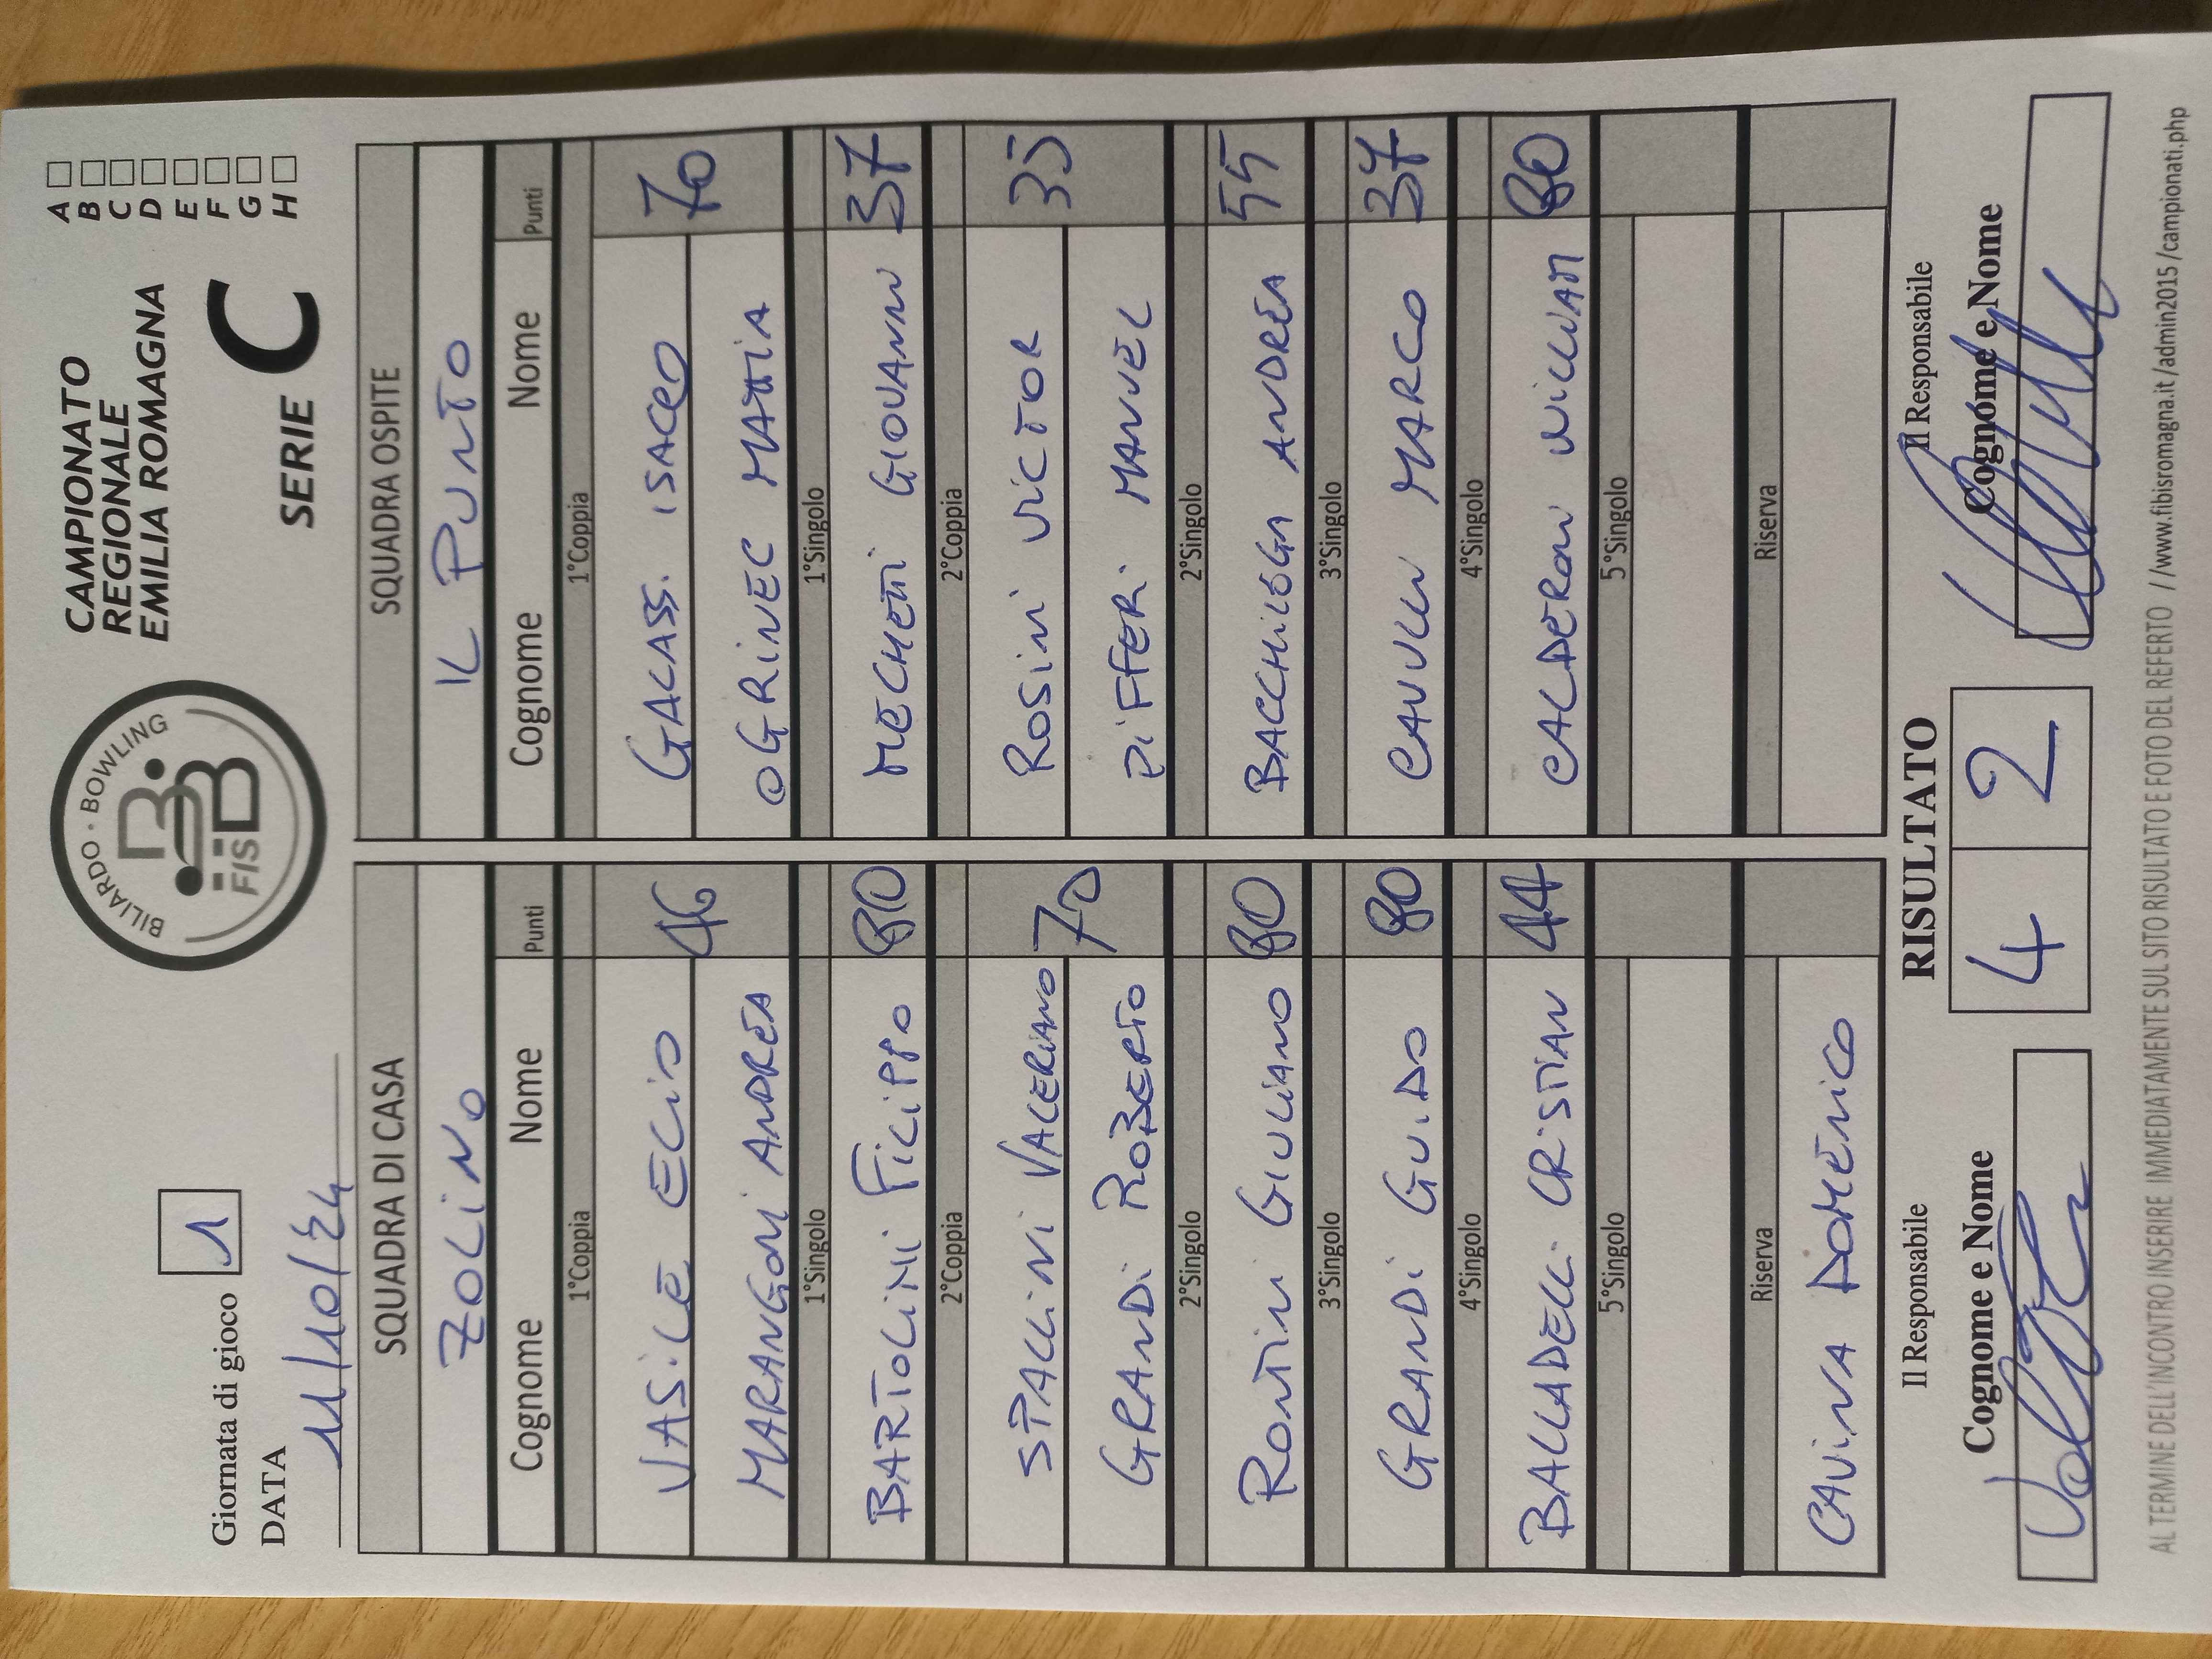 Giornata di gioco 1
DATA 11/10/24
BILIARDO · BOWLING
FISBB
CAMPIONATO
REGIONALE
EMILIA ROMAGNA
SERIE C
A
B
C
D
E
F
G
H
SQUADRA DI CASA
ZOLINO
Cognome Nome Punti
1°Coppia
VASILE ELIO 46
MARANGONI ANDREA
1°Singolo
BARTOLINI FILIPPO 80
2°Coppia
STALLINI VALERIANO 70
GRANDI ROBERTO
2°Singolo
RONTINI GIULIANO 80
3°Singolo
GRANDI GUIDO 80
4°Singolo
BALLADELLI CRISTIAN 44
5°Singolo
Riserva
CAVINA DOMENICO
SQUADRA OSPITE
IL PUNTO
Cognome Nome Punti
1°Coppia
GALASSI ISACCO 70
OGRINEC MATTIA
1°Singolo
MECHETTI GIOVANNI 37
2°Coppia
ROSINI VICTOR 35
PIFFERI MANUEL
2°Singolo
BACCHILEGA ANDREA 55
3°Singolo
CAVULLI MARCO 37
4°Singolo
CALDERONI WILLIAM 80
5°Singolo
Riserva
Il Responsabile
Cognome e Nome
RISULTATO
4 2
Il Responsabile
Cognome e Nome
AL TERMINE DELL'INCONTRO INSERIRE IMMEDIATAMENTE SUL SITO RISULTATO E FOTO DEL REFERTO //www.fibisromagna.it/admin2015/campionati.php